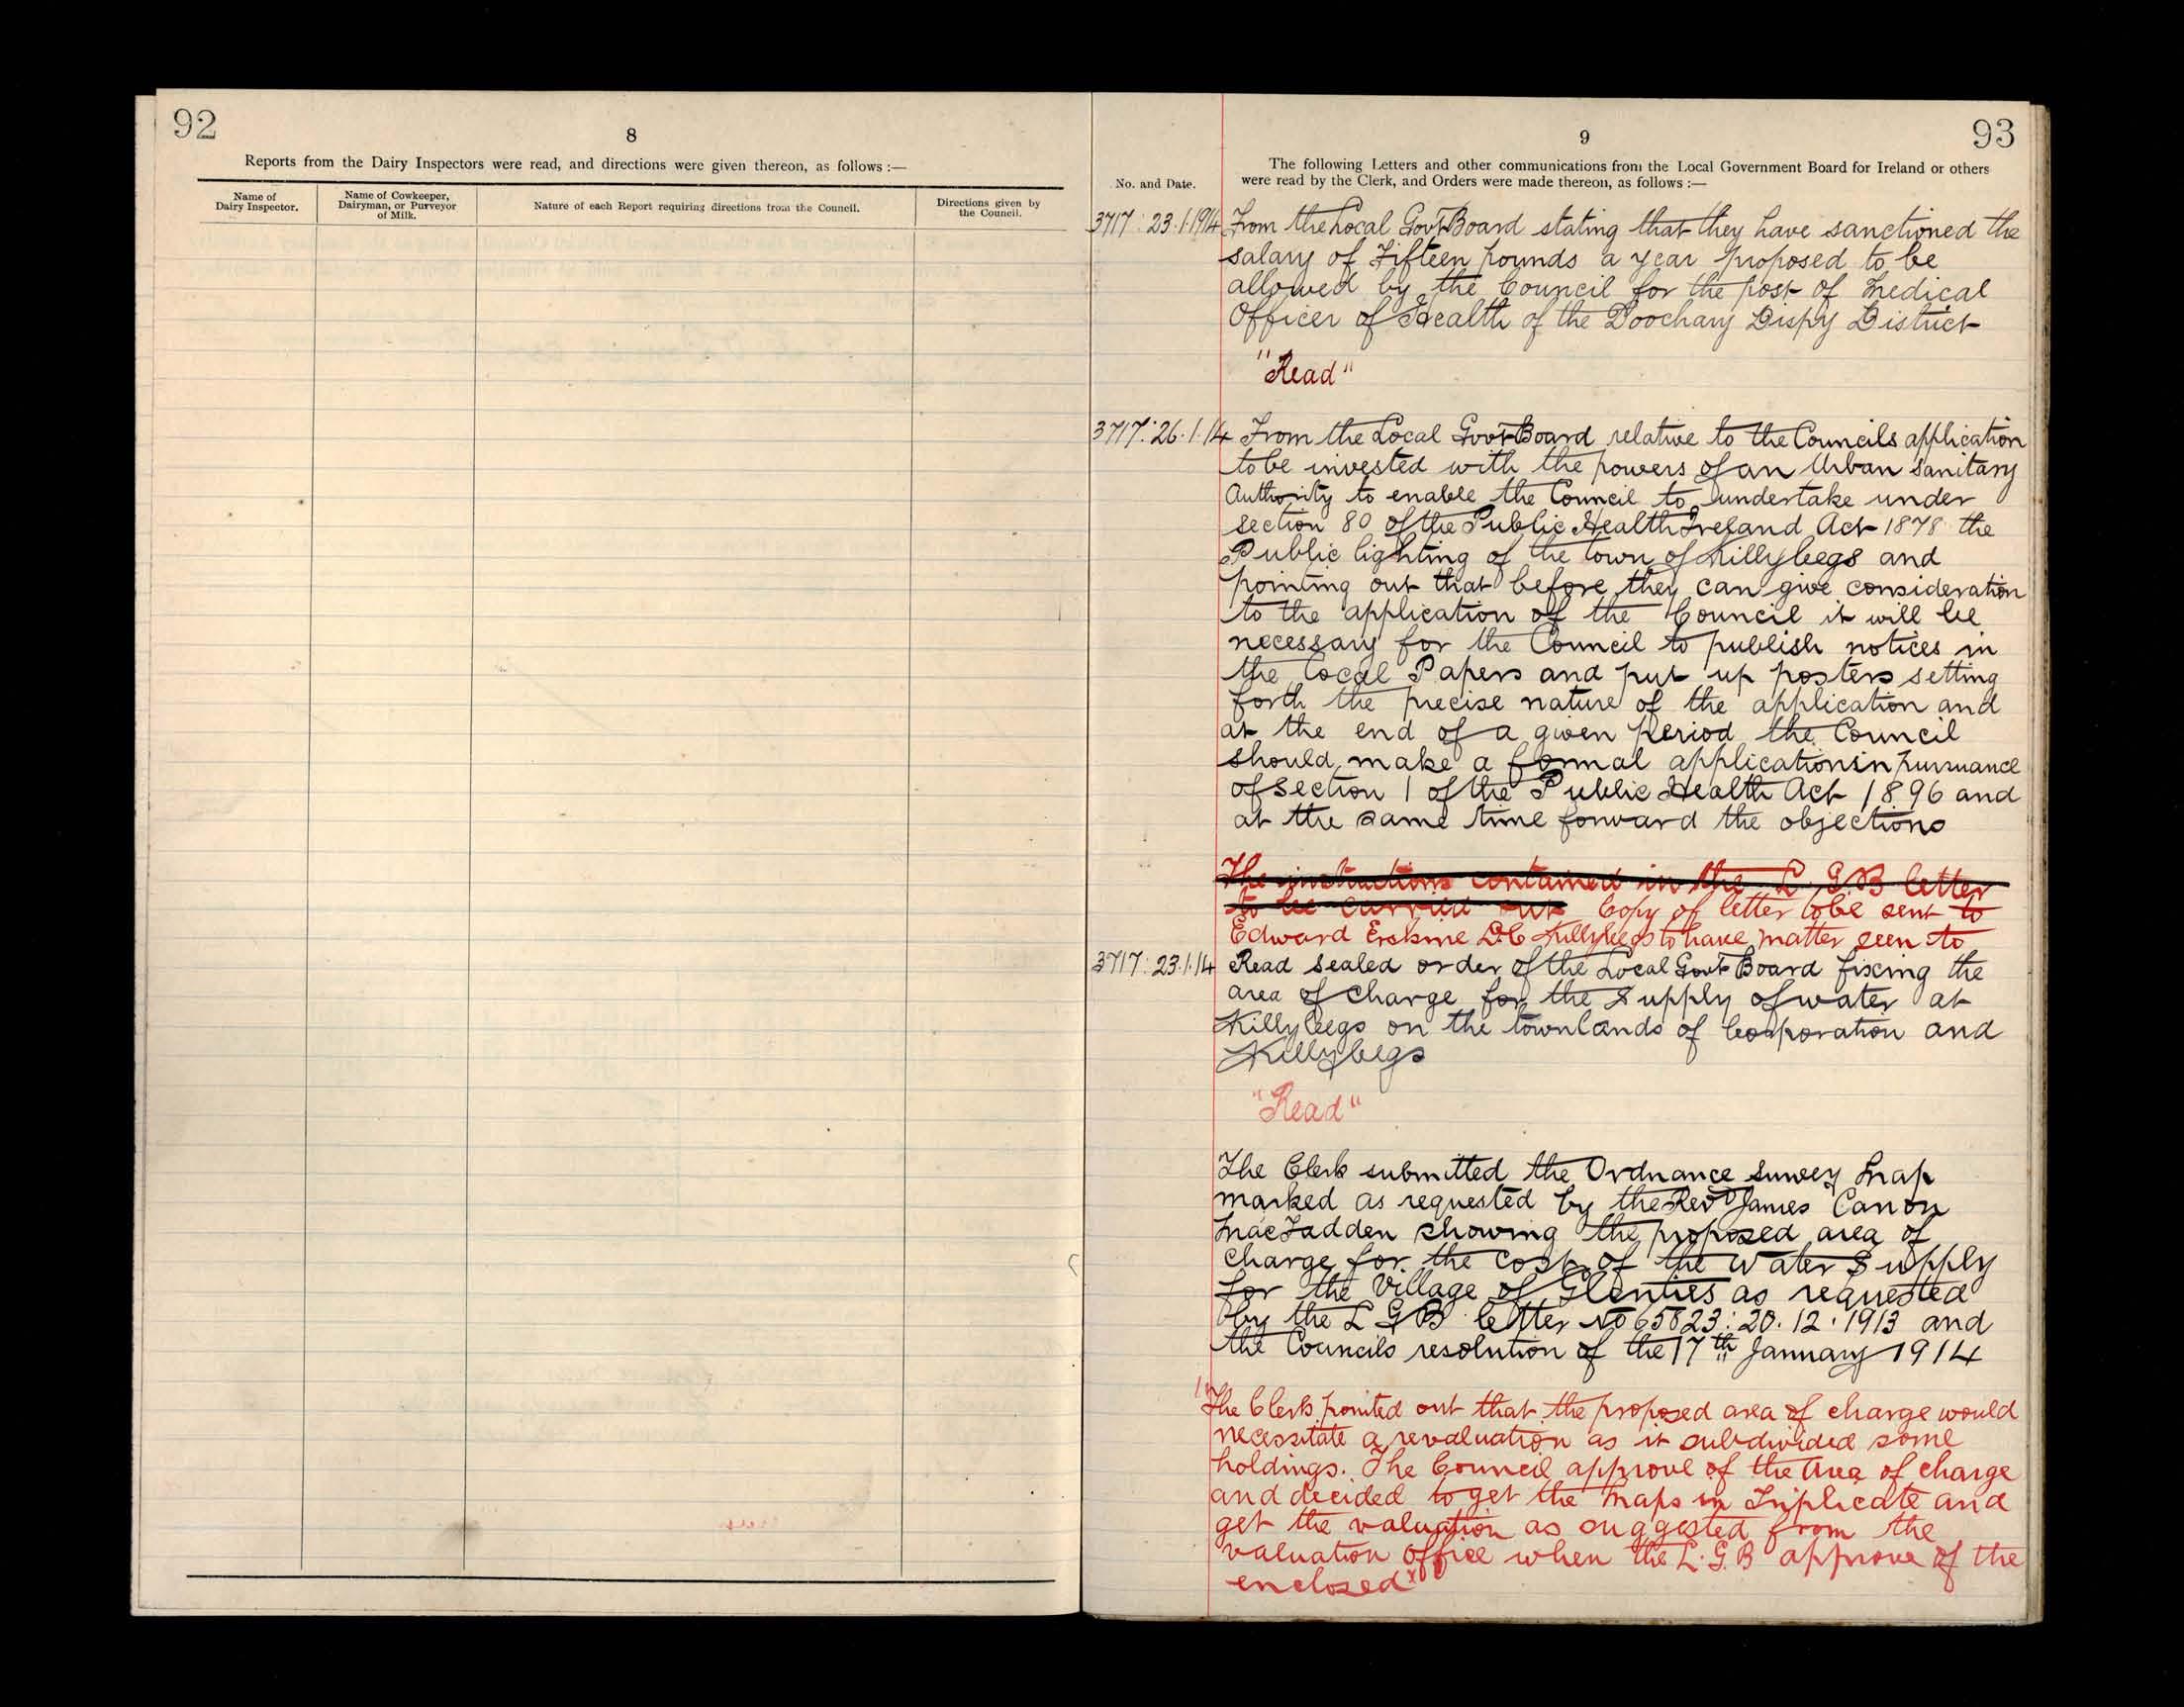 92
8
Reports from the Dairy Inspectors were read, and directions were given thereon, as follows :—
Name of Dairy Inspector.
Name of Cowkeeper, Dairyman, or Purveyor of Milk.
Nature of each Report requiring directions from the Council.
Directions given by the Council.
93
9
The following Letters and other communications from the Local Government Board for Ireland or others
were read by the Clerk, and Orders were made thereon, as follows :—
No. and Date.
3717 : 23.1.1914 From the Local Govt Board stating that they have sanctioned the
salary of Fifteen pounds a year proposed to be
allowed by the Council for the post of Medical
Officer of Health of the Doochary Dispy District
"Read"
3717 : 26.1.14 From the Local Govt Board relative to the Councils application
to be invested with the powers of an Urban Sanitary
Authority to enable the Council to undertake under
section 80 of the Public Health Ireland Act 1878 the
Public lighting of the town of Killybegs and
pointing out that before they can give consideration
to the application of the Council it will be
necessary for the Council to publish notices in
the local Papers and put up posters setting
forth the precise nature of the application and
at the end of a given period the Council
should make a formal application in pursuance
of section 1 of the Public Health Act 1896 and
at the same time forward the objections
The instructions contained in the L. G. B letter
to be carried out Copy of letter to be sent to
Edward Erskine D.C Killybegs to have matter seen to
3717 : 23.1.14 Read sealed order of the Local Govt Board fixing the
area of charge for the Supply of water at
Killybegs on the townlands of Corporation and
Killybegs
"Read"
The Clerk submitted the Ordnance Survey Map
marked as requested by the Revd James Canon
MacFadden showing the proposed area of
charge for the cost of the Water Supply
for the Village of Glenties as requested
by the L G B letter No 65823 : 20.12.1913 and
the Councils resolution of the 17th January 1914
The Clerk pointed out that the proposed area of charge would
necessitate a revaluation as it subdivided some
holdings. The Council approve of the area of charge
and decided to get the maps in Triplicate and
get the valuation as suggested from the
valuation office when the L. G. B approve of the
enclosed"